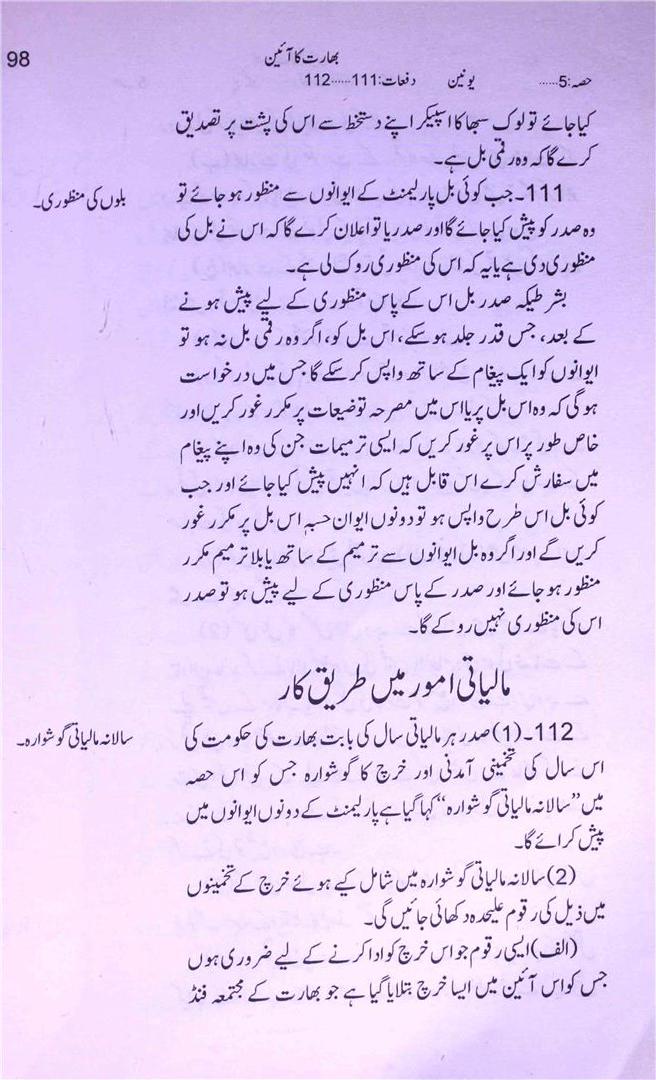 98
بھارت کا آئین
حصہ:5...... یونین دفعات:111......112
کیا جائے تو لوک سبھا کا اسپیکر اپنے دستخط سے اس کی پشت پر تصدیق
کرے گا کہ وہ رقمی بل ہے۔
بلوں کی منظوری۔
111۔جب کوئی بل پارلیمنٹ کے ایوانوں سے منظور ہو جائے تو
وہ صدر کو پیش کیا جائے گا اور صدر یا تو اعلان کرے گا کہ اس نے بل کی
منظوری دی ہے یا یہ کہ اس کی منظوری روک لی ہے۔
بشرطیکہ صدر بل اس کے پاس منظوری کے لیے پیش ہونے
کے بعد، جس قدر جلد ہو سکے، اس بل کو، اگر وہ رقمی بل نہ ہو تو
ایوانوں کو ایک پیغام کے ساتھ واپس کر سکے گا جس میں درخواست
ہو گی کہ وہ اس بل پر یا اس میں مصرحہ توضیعات پر مکرر غور کریں اور
خاص طور پر اس پر غور کریں کہ ایسی ترمیمات جن کی وہ اپنے پیغام
میں سفارش کرے اس قابل ہیں کہ انہیں پیش کیا جائے اور جب
کوئی بل اس طرح واپس ہو تو دونوں ایوان حسبہٖ اس بل پر مکرر غور
کریں گے اور اگر وہ بل ایوانوں سے ترمیم کے ساتھ یا بلا ترمیم مکرر
منظور ہو جائے اور صدر کے پاس منظوری کے لیے پیش ہو تو صدر
اس کی منظوری نہیں روکے گا۔
مالیاتی امور میں طریق کار
سالانہ مالیاتی گوشوارہ۔
112۔(1)صدر ہر مالیاتی سال کی بابت بھارت کی حکومت کی
اس سال کی تخمینی آمدنی اور خرچ کا گوشوارہ جس کو اس حصہ
میں ”سالانہ مالیاتی گوشوارہ“ کہا گیا ہے پارلیمنٹ کے دونوں ایوانوں میں
پیش کرائے گا۔
(2)سالانہ مالیاتی گوشوارہ میں شامل کیے ہوئے خرچ کے تخمینوں
میں ذیل کی رقوم علیحدہ دکھائی جائیں گی۔
(الف)ایسی رقوم جو اس خرچ کو ادا کرنے کے لیے ضروری ہوں
جس کو اس آئین میں ایسا خرچ بتلایا گیا ہے جو بھارت کے مجتمعہ فنڈ